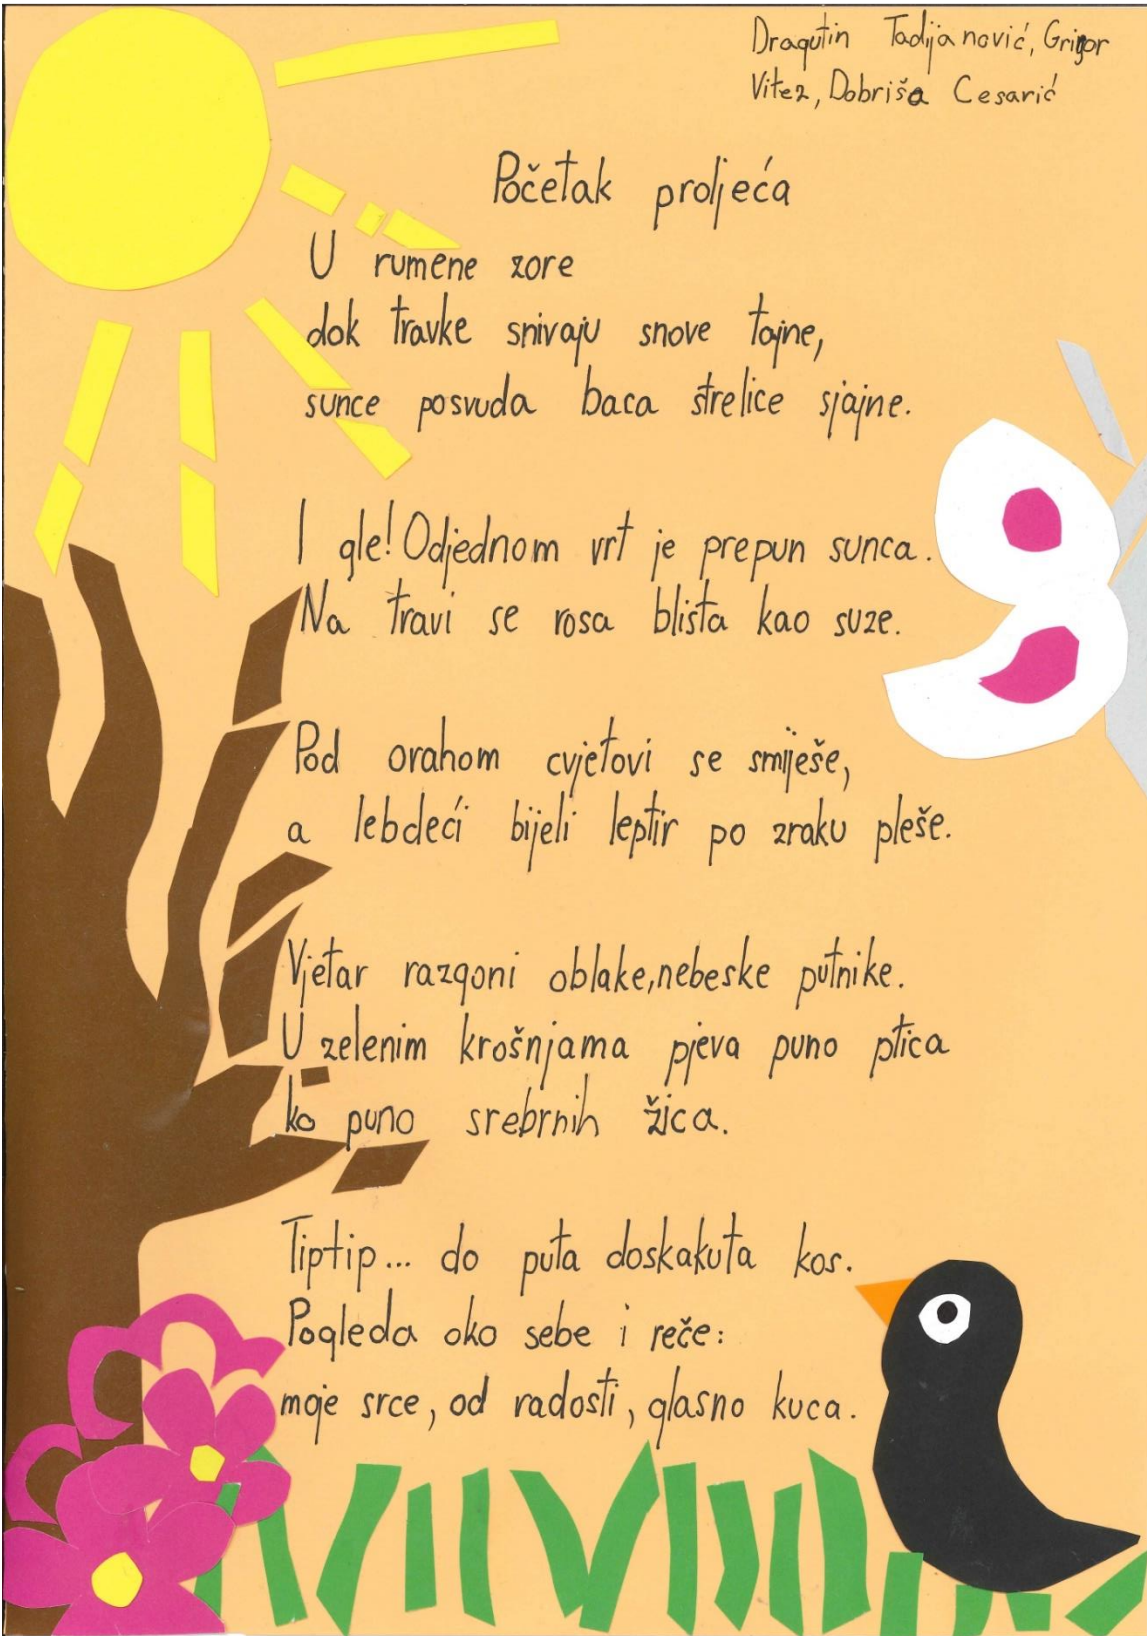 Dragutin Tadijanović, Grigor
Vitez, Dobriša Cesarić
Početak proljeća
U rumene zore
dok travke snivaju snove tajne,
sunce posvuda baca strelice sjajne.
I gle! Odjednom vrt je prepun sunca.
Na travi se rosa blista kao suze.
Pod orahom cvjetovi se smiješe,
a lebdeći bijeli leptir po zraku pleše.
Vjetar razgoni oblake, nebeske putnike.
U zelenim krošnjama pjeva puno ptica
ko puno srebrnih žica.
Tiptip... do puta doskakuta kos.
Pogleda oko sebe i reče:
moje srce, od radosti, glasno kuca.